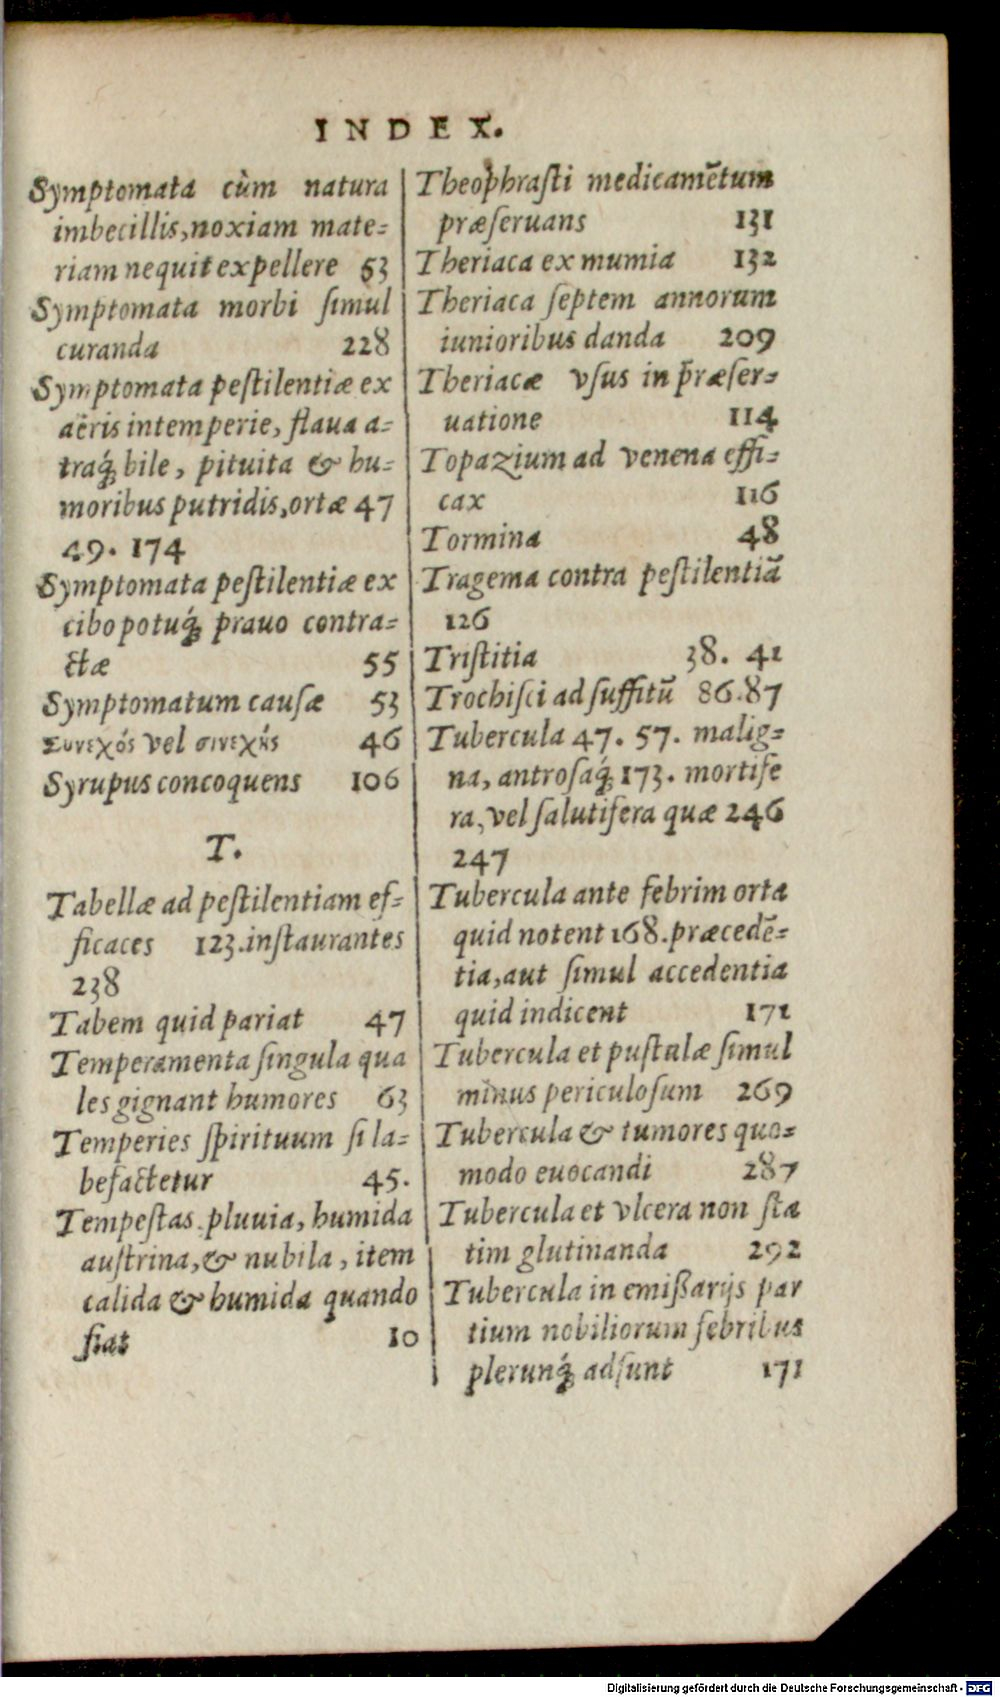 INDEX.
Symptomata cùm natura
imbecillis, noxiam mate-
riam nequit expellere 53
Symptomata morbi ſimul
curanda 228
Symptomata peſtilentiæ ex
aëris intemperie, flaua a-
traq́ꝫ bile, pituita & hu-
moribus putridis, ortæ 47
49. 174
Symptomata peſtilentiæ ex
cibo potuq́ꝫ prauo contra-
ctæ 55
Symptomatum cauſæ 53
Συνεχός vel σινεχὴς 46
Syrupus concoquens 106
T.
Tabellæ ad peſtilentiam ef-
ficaces 123. inſtaurantes
238
Tabem quid pariat 47
Temperamenta ſingula qua
les gignant humores 63
Temperies ſpirituum ſi la-
befactetur 45.
Tempeſtas pluuia, humida
auſtrina, & nubila, item
calida & humida quando
fiat 10
Theophraſti medicamẽtum
præſeruans 131
Theriaca ex mumia 132
Theriaca ſeptem annorum
iunioribus danda 209
Theriacæ vſus in præſer-
uatione 114
Topazium ad venena effi-
cax 116
Tormina 48
Tragema contra peſtilentiã
126
Triſtitia 38. 41
Trochiſci ad ſuffitũ 86.87
Tubercula 47. 57. malig-
na, antroſaq́ꝫ 173. mortife
ra, vel ſalutifera quæ 246
247
Tubercula ante febrim orta
quid notent 168. præcedẽ-
tia, aut ſimul accedentia
quid indicent 171
Tubercula et puſtulæ ſimul
minus periculoſum 269
Tubercula & tumores quo-
modo euocandi 287
Tubercula et vlcera non ſta
tim glutinanda 292
Tubercula in emißarijs par
tium nobiliorum febribus
plerunq́ꝫ adſunt 171
Digitalisierung gefördert durch die Deutsche Forschungsgemeinschaft - DFG